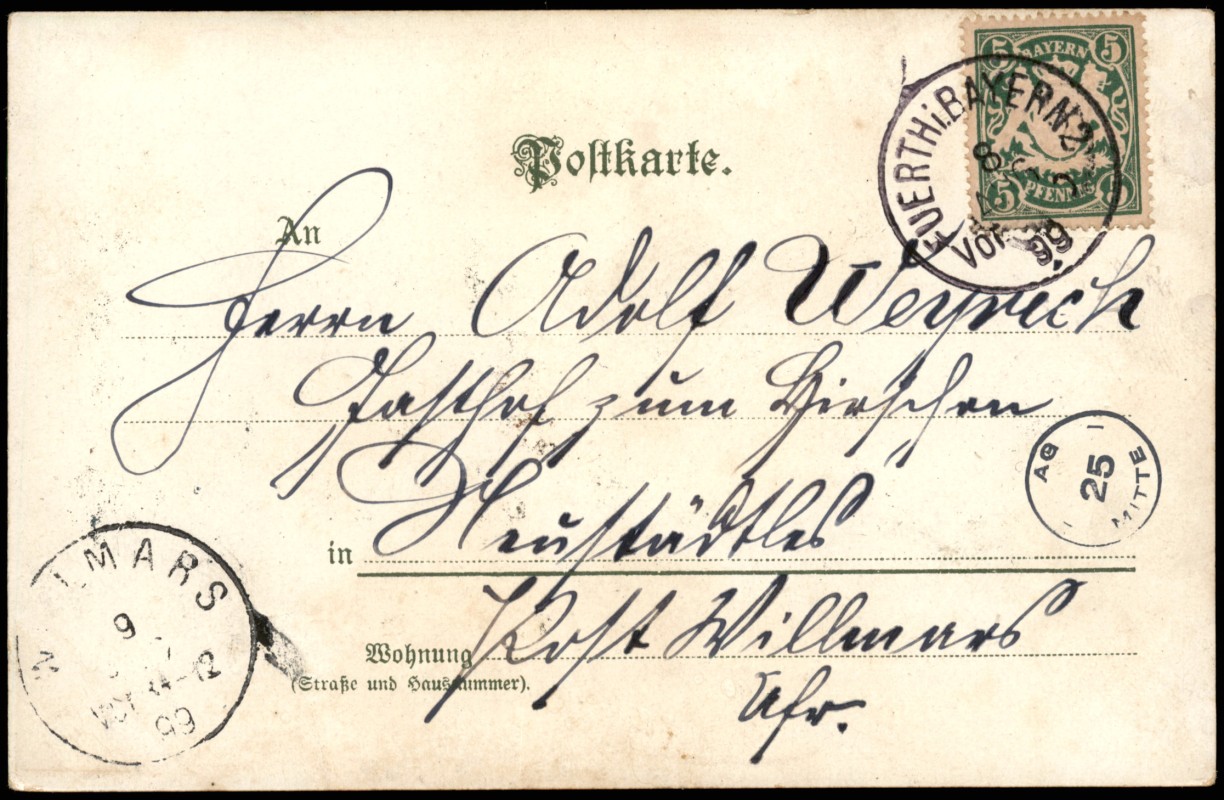 BAYERN
5 5
5 5
PFENNIG
FUERTH i. BAYERN. 2
8
VOR
99
Postkarte.
An
Herrn Adolf Weyrich
Gasthof zum Hirschen
AG I
25
I MITTE
in Neustädtles
WILLMARS
9
VOR 11-12
99
Wohnung Post Willmars
(Straße und Hausnummer).
Ufr.